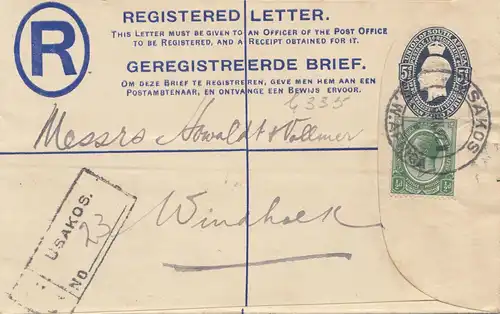 R
REGISTERED LETTER.
THIS LETTER MUST BE GIVEN TO AN OFFICER OF THE POST OFFICE
TO BE REGISTERED, AND A RECEIPT OBTAINED FOR IT.
GEREGISTREERDE BRIEF.
OM DEZE BRIEF TE REGISTREREN, GEVE MEN HEM AAN EEN
POSTAMBTENAAR, EN ONTVANGE EEN BEWIJS ERVOOR.
UNION OF SOUTH AFRICA
USAKOS
6335
Messrs Howaldt & Vollmer
Windhoek
USAKOS.
No 23